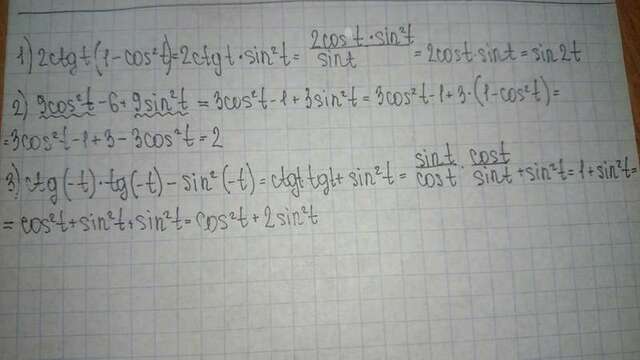 1) 2ctg t (1-cos²t)=2ctg t·sin²t= 2cos t·sin²t/sint = 2cost·sint = sin2t
2) 9cos²t-6+9sin²t = 3cos²t-1+3sin²t=3cos²t-1+3·(1-cos²t)=
=3cos²t-1+3-3cos²t=2
3) ctg(-t)·tg(-t)-sin²(-t)=ctgt tgt+sin²t= sint/cost · cost/sint +sin²t=1+sin²t=
= cos²t+sin²t+sin²t=cos²t+2sin²t